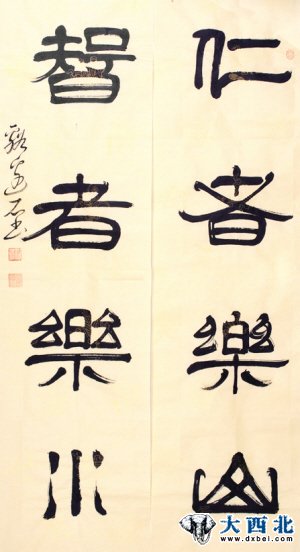 仁者樂山
智者樂水
大西北
www.dxbei.com